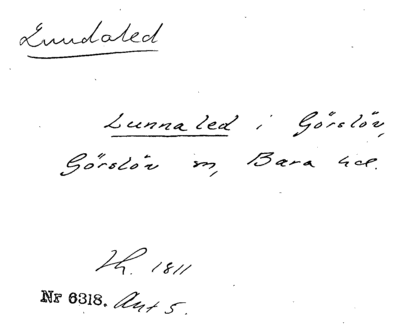 Lundaled
Lunnaled i Görslöv,
Görslöv sn, Bara hd.
Th. 1811
Nr 6318. Ant 5.